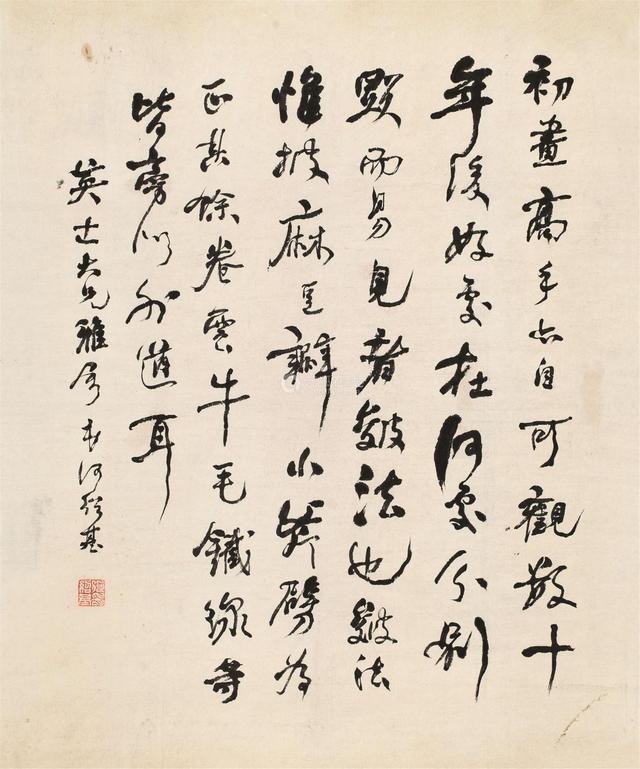 初畫高手亦自可觀數十
年後好處在何處分別
顯而易見者皴法也皴法
惟披麻豆瓣小斧劈為
正其餘卷雲牛毛鐵線等
皆旁門外道耳
英士大兄雅屬弟何紹基